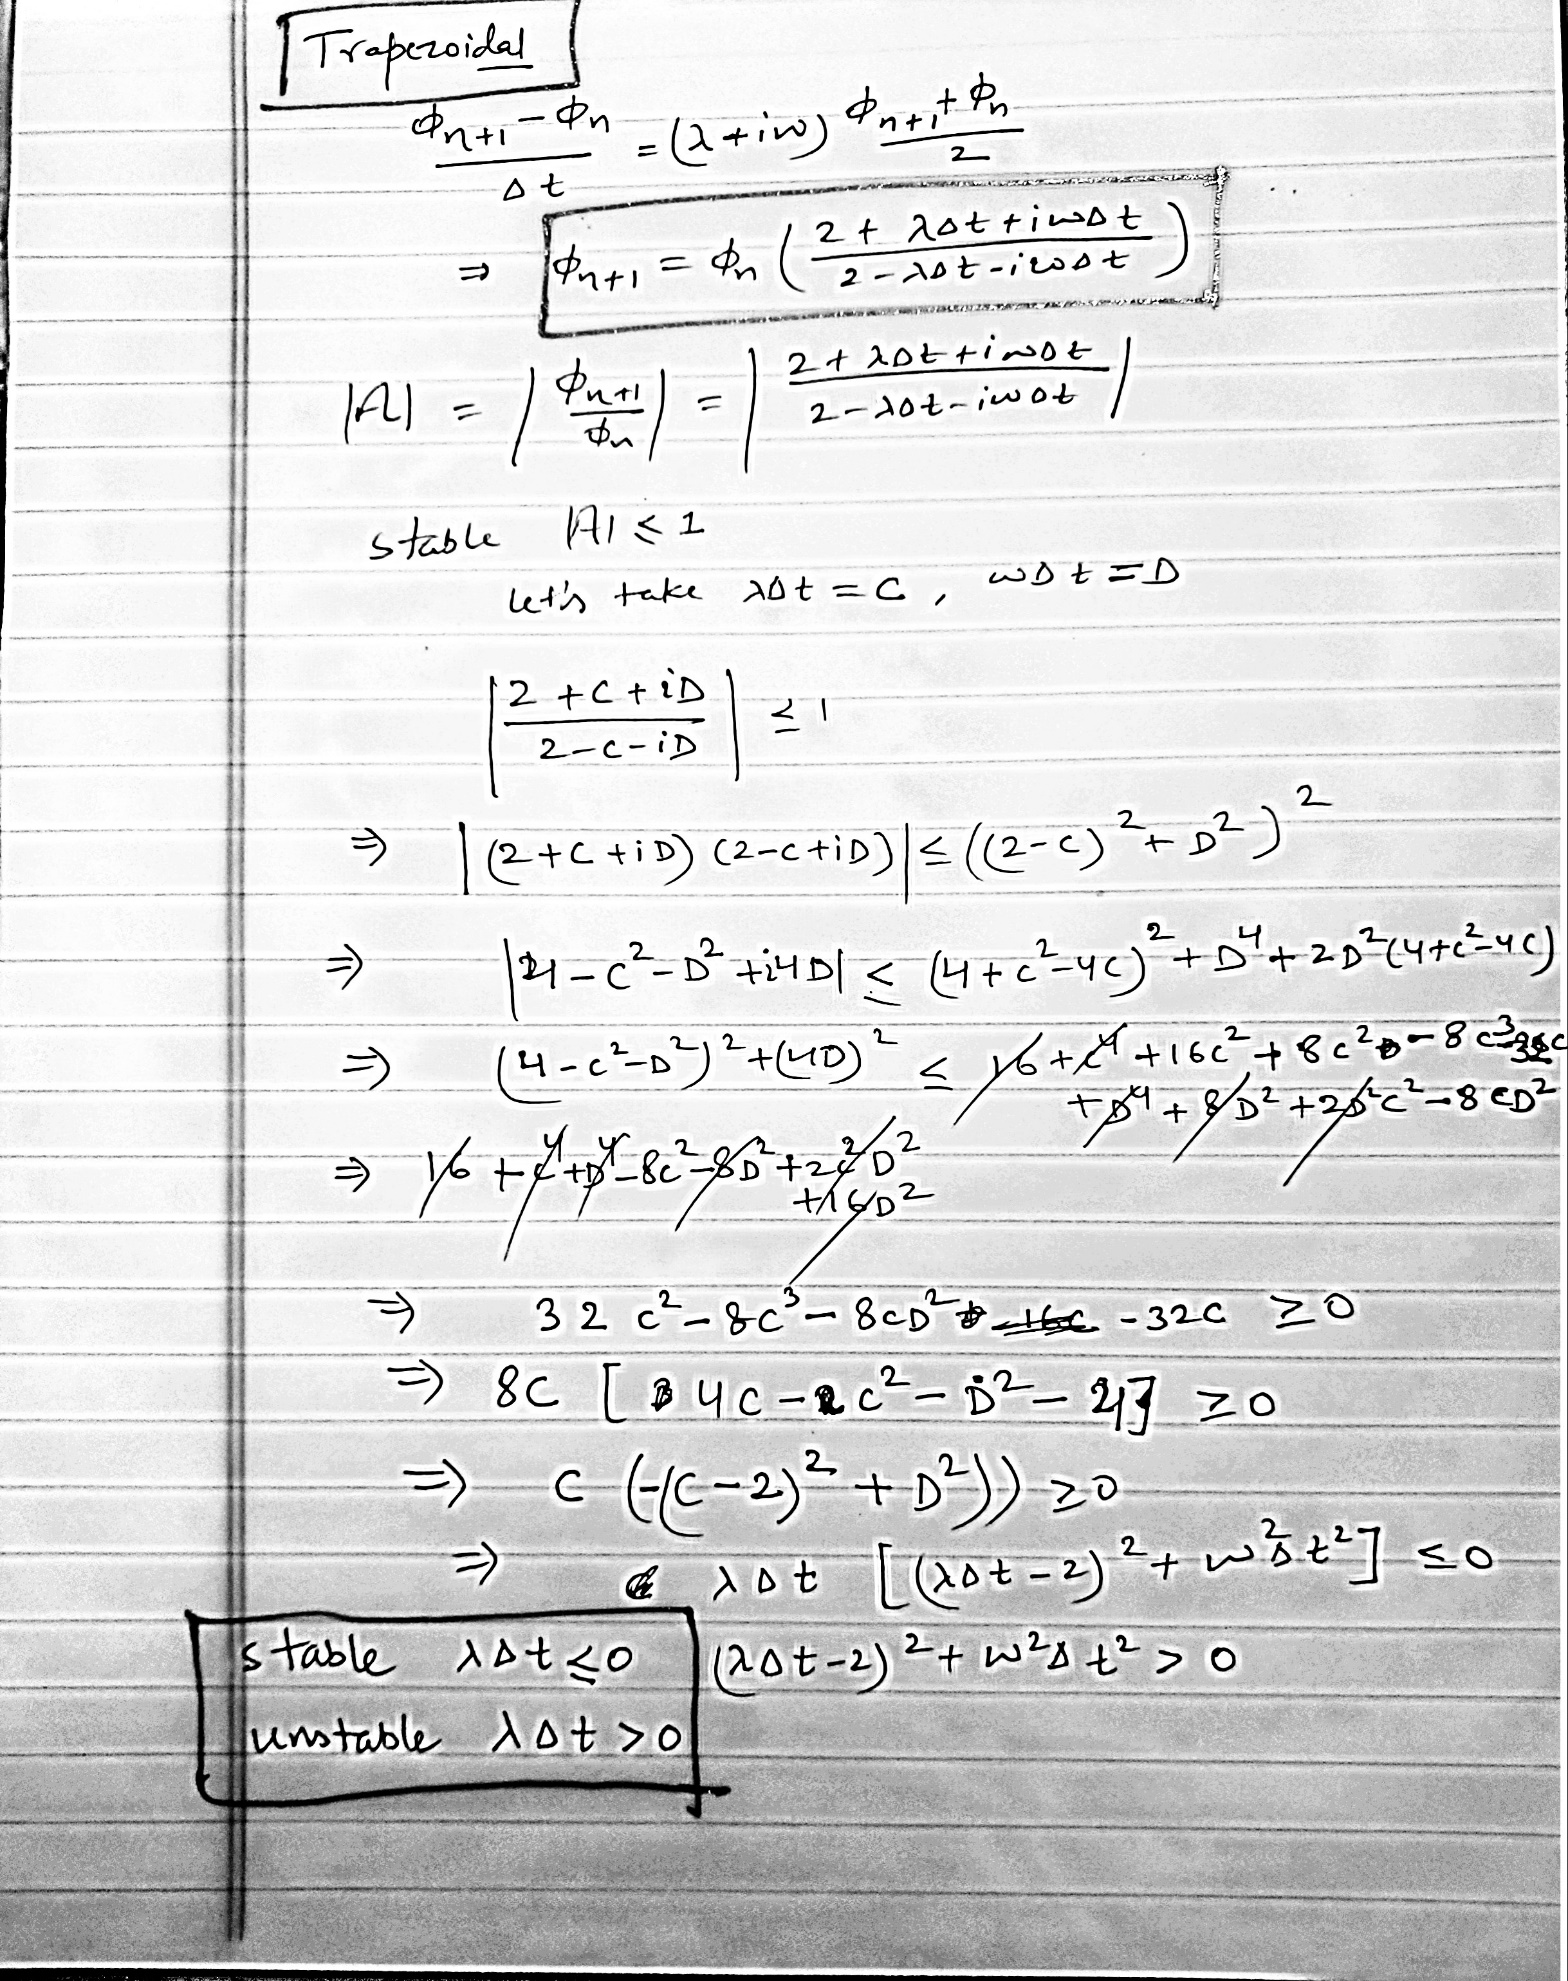 Trapezoidal
(ϕn+1 - ϕn)/Δt = (λ+iw) (ϕn+1 + ϕn)/2
⇒ ϕn+1 = ϕn ( (2 + λΔt + iwΔt)/(2 - λΔt - iwΔt) )
|A| = | ϕn+1/ϕn | = | (2 + λΔt + iwΔt)/(2 - λΔt - iwΔt) |
stable |A| ≤ 1
let's take λΔt = C, wΔt = D
| (2 + C + iD)/(2 - C - iD) | ≤ 1
⇒ |(2 + C + iD) (2 - C + iD)| ≤ ((2 - C)² + D²)²
⇒ |4 - C² - D² + i4D| ≤ (4 + C² - 4C)² + D⁴ + 2D²(4 + C² - 4C)
⇒ (4 - C² - D²)² + (4D)² ≤ 16 + C⁴ + 16C² + 8C² - 8C³ - 32C
+ D⁴ + 8D² + 2D²C² - 8CD²
⇒ 16 + C⁴ + D⁴ - 8C² - 8D² + 2C²D²
+ 16D²
⇒ 32C² - 8C³ - 8CD² - 32C ≥ 0
⇒ 8C [4C - C² - D² - 4] ≥ 0
⇒ C (-((C - 2)² + D²)) ≥ 0
⇒ λΔt [(λΔt - 2)² + w²Δt²] ≤ 0
stable λΔt ≤ 0 (λΔt - 2)² + w²Δt² > 0
unstable λΔt > 0